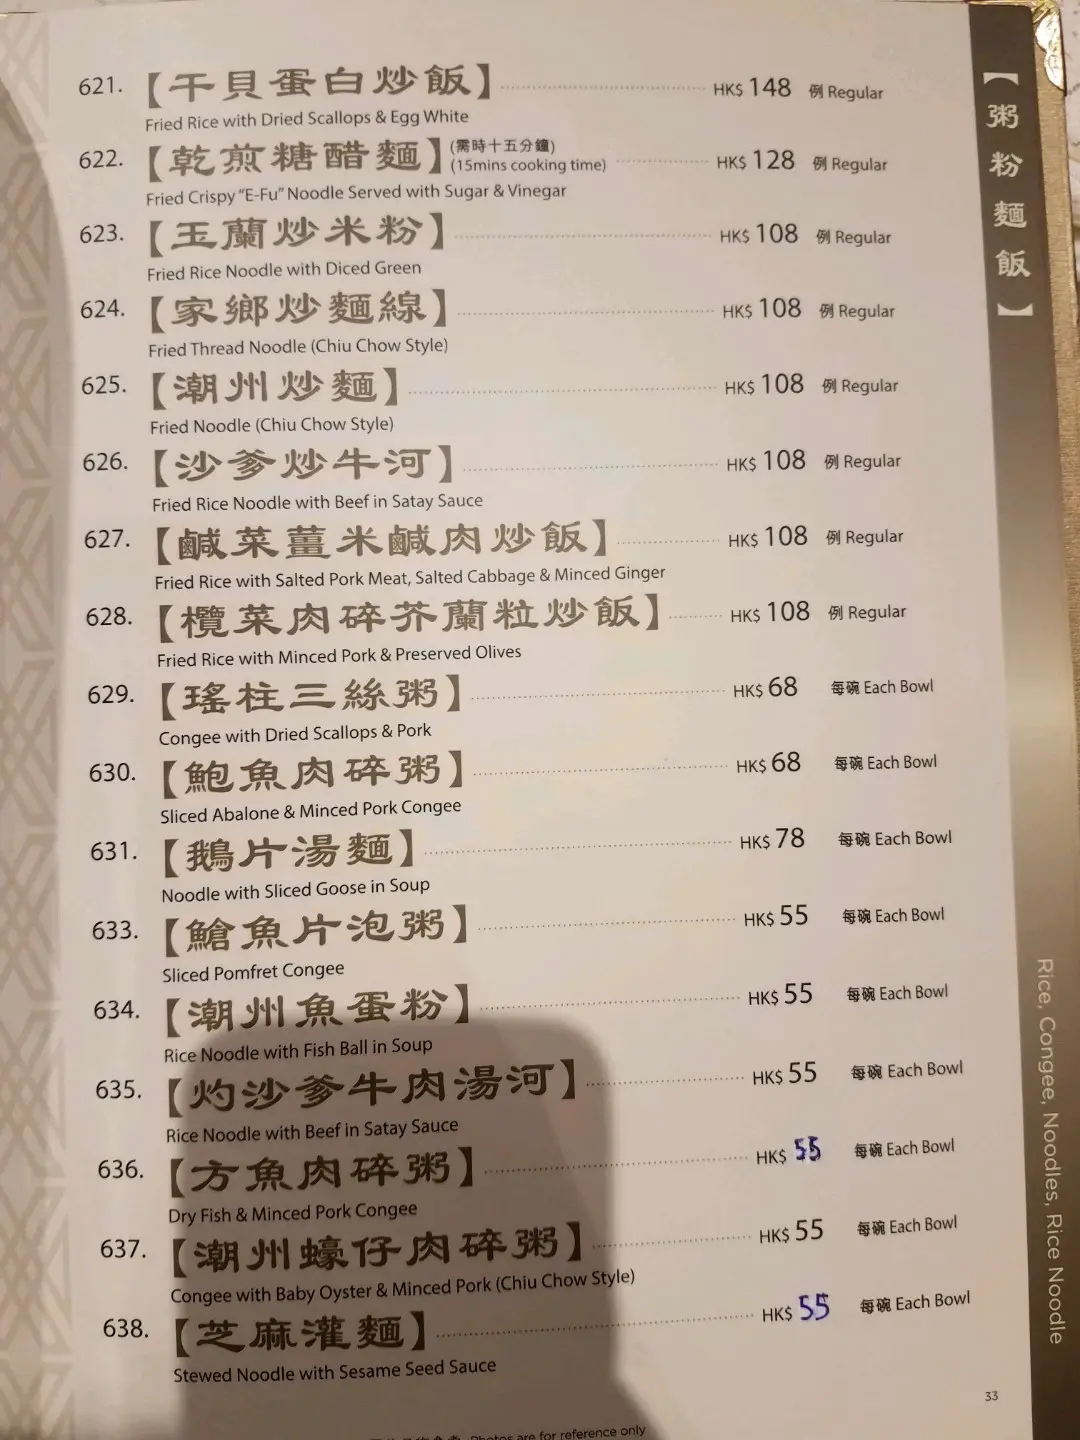 621. 【干貝蛋白炒飯】 HK$ 148 例 Regular
Fried Rice with Dried Scallops & Egg White
622. 【乾煎糖醋麵】 (需時十五分鐘) (15mins cooking time) HK$ 128 例 Regular
Fried Crispy "E-Fu" Noodle Served with Sugar & Vinegar
623. 【玉蘭炒米粉】 HK$ 108 例 Regular
Fried Rice Noodle with Diced Green
624. 【家鄉炒麵線】 HK$ 108 例 Regular
Fried Thread Noodle (Chiu Chow Style)
625. 【潮州炒麵】 HK$ 108 例 Regular
Fried Noodle (Chiu Chow Style)
626. 【沙爹炒牛河】 HK$ 108 例 Regular
Fried Rice Noodle with Beef in Satay Sauce
627. 【鹹菜薑米鹹肉炒飯】 HK$ 108 例 Regular
Fried Rice with Salted Pork Meat, Salted Cabbage & Minced Ginger
628. 【欖菜肉碎芥蘭粒炒飯】 HK$ 108 例 Regular
Fried Rice with Minced Pork & Preserved Olives
629. 【瑤柱三絲粥】 HK$ 68 每碗 Each Bowl
Congee with Dried Scallops & Pork
630. 【鮑魚肉碎粥】 HK$ 68 每碗 Each Bowl
Sliced Abalone & Minced Pork Congee
631. 【鵝片湯麵】 HK$ 78 每碗 Each Bowl
Noodle with Sliced Goose in Soup
633. 【鯧魚片泡粥】 HK$ 55 每碗 Each Bowl
Sliced Pomfret Congee
634. 【潮州魚蛋粉】 HK$ 55 每碗 Each Bowl
Rice Noodle with Fish Ball in Soup
635. 【灼沙爹牛肉湯河】 HK$ 55 每碗 Each Bowl
Rice Noodle with Beef in Satay Sauce
636. 【方魚肉碎粥】 HK$ 55 每碗 Each Bowl
Dry Fish & Minced Pork Congee
637. 【潮州蠔仔肉碎粥】 HK$ 55 每碗 Each Bowl
Congee with Baby Oyster & Minced Pork (Chiu Chow Style)
638. 【芝麻灌麵】 HK$ 55 每碗 Each Bowl
Stewed Noodle with Sesame Seed Sauce
【粥粉麵飯】
Rice, Congee, Noodles, Rice Noodle
33
Photos are for reference only